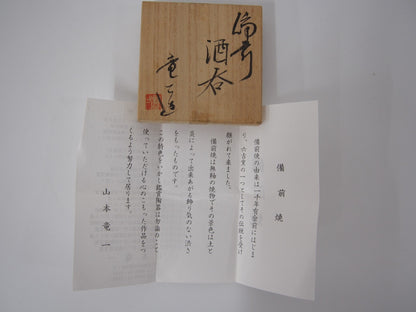 備前
酒呑
竜一造
備前焼
備前焼の由来は一千年有余前にはじま
り、六古窯の一つとしてその伝統を受け
継がれて来ました。
備前焼は無釉の焼物でその景色は土と
炎によって出来あがる飾り気のない渋さ
をもったものです。
この特色をいかし鑑賞陶器は勿論のこと
使っていただける心のこもった作品をつ
くるよう努力して居ります。
山本竜一